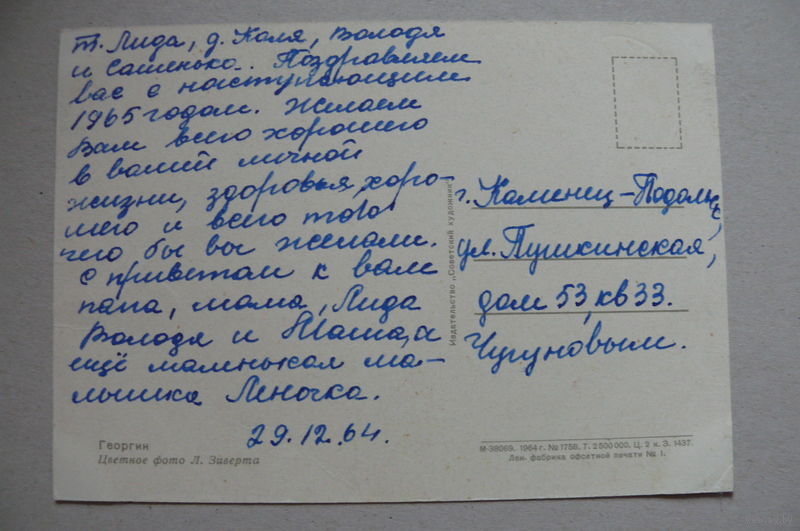 т. Лида, д. Коля, Володя
и Сашенька. Поздравляем
вас с наступающим
1965 годом. Желаем
Вам всего хорошего
в вашей личной
жизни, здоровья, хоро-
шего и всего того
чего бы вы желали.
С приветом к вам
папа, мама, Лида
Володя и Таша, и
ещё маленькая ма-
лышка Леночка.
29.12.64.
Георгин
Цветное фото Л. Зиверта
Издательство „Советский художник"
г. Каменец-Подольс,
ул. Пушкинская,
дом 53, кв 33.
Чугуновым.
М-38069. 1964 г. № 1758. Т. 2 500 000. Ц. 2 к. З. 1437.
Лен. фабрика офсетной печати № 1.